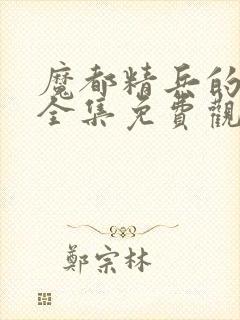 魔都精兵的
全集免費觀
鄭宗林